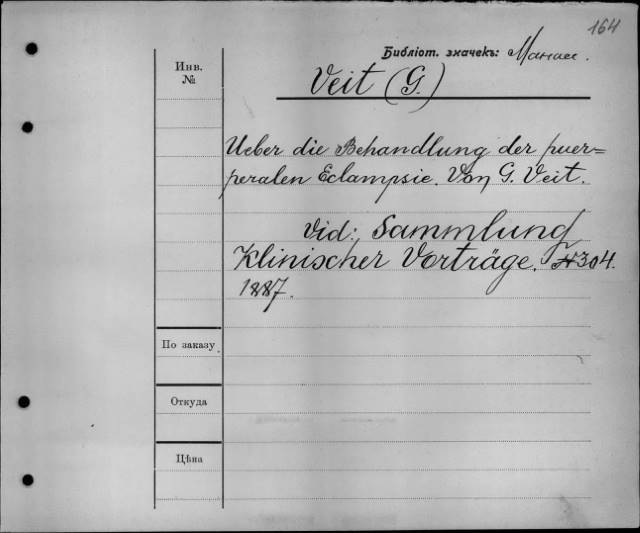 164
Библіот. значекъ: Манасс.
Инв.
№
Veit (G.)
Ueber die Behandlung der puer=
peralen Eclampsie. Von G. Veit.
Vid: Sammlung
Klinischer Vorträge. № 304.
1887.
По заказу
Откуда
Цѣна